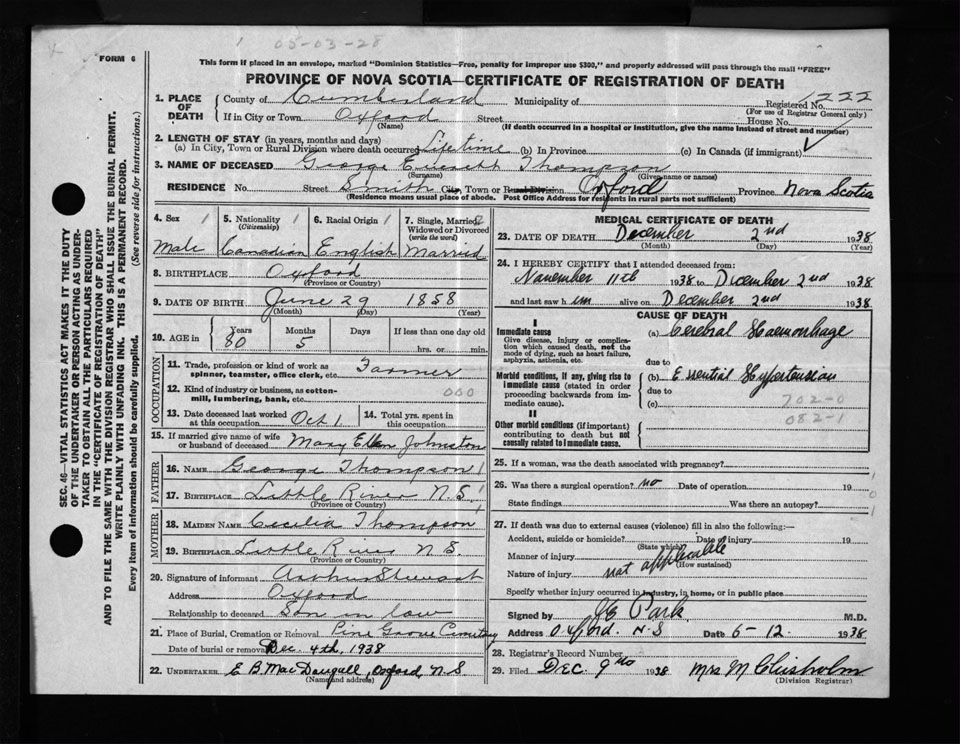 05-03-28
FORM 6
This form if placed in an envelope, marked "Dominion Statistics—Free, penalty for improper use $300," and properly addressed will pass through the mail "FREE"
PROVINCE OF NOVA SCOTIA—CERTIFICATE OF REGISTRATION OF DEATH
1. PLACE OF DEATH
County of Cumberland Municipality of Registered No. 1222
(For use of Registrar General only)
If in City or Town Oxford Street House No.
(Name) (If death occurred in a hospital or institution, give the name instead of street and number)
2. LENGTH OF STAY (in years, months and days)
(a) In City, Town or Rural Division where death occurred Lifetime (b) In Province (c) In Canada (if immigrant)
3. NAME OF DECEASED George Everett Thompson
(Surname) (Given name or names)
RESIDENCE No. Street Smith City, Town or Rural Division Oxford Province Nova Scotia
(Residence means usual place of abode. Post Office Address for residents in rural parts not sufficient)
4. Sex 1
Male
5. Nationality 1
(Citizenship)
Canadian
6. Racial Origin 1
English
7. Single, Married, 2
Widowed or Divorced
(write the word)
Married
8. BIRTHPLACE Oxford
(Province or Country)
9. DATE OF BIRTH June 29 1858
(Month) (Day) (Year)
10. AGE in Years Months Days If less than one day old
80 5 hrs. or min.
OCCUPATION
11. Trade, profession or kind of work as spinner, teamster, office clerk, etc. Farmer
12. Kind of industry or business, as cotton-mill, lumbering, bank, etc. 000
13. Date deceased last worked at this occupation Oct 1
14. Total yrs. spent in this occupation
15. If married give name of wife or husband of deceased Mary Ellen Johnston
FATHER
16. NAME George Thompson 1
17. BIRTHPLACE Little River N.S. 1
(Province or Country)
MOTHER
18. MAIDEN NAME Cecilia Thompson
19. BIRTHPLACE Little River N S.
(Province or Country)
20. Signature of informant Arthur Stewart
Address Oxford
Relationship to deceased Son in law
21. Place of Burial, Cremation or Removal Pine Grove Cemetery
Date of burial or removal Dec. 4th, 1938
22. UNDERTAKER E B MacDougall, Oxford, N S
(Name and address)
MEDICAL CERTIFICATE OF DEATH
23. DATE OF DEATH December 2nd 1938
(Month) (Day) (Year)
24. I HEREBY CERTIFY that I attended deceased from:
November 11th 1938 to December 2nd 1938
and last saw h im alive on December 2nd 1938.
CAUSE OF DEATH
I
Immediate cause (a) Cerebral Haemorrhage
Give disease, injury or complication which caused death, not the mode of dying, such as heart failure, asphyxia, asthenia, etc.
due to
Morbid conditions, if any, giving rise to immediate cause (stated in order proceeding backwards from immediate cause). (b) Essential Hypertension
due to
(c) 702-0
082-1
II
Other morbid conditions (if important) contributing to death but not causally related to immediate cause.
25. If a woman, was the death associated with pregnancy?
26. Was there a surgical operation? no Date of operation 19
State findings Was there an autopsy?
27. If death was due to external causes (violence) fill in also the following:—
Accident, suicide or homicide? Date of injury 19
(State which)
Manner of injury not applicable
(How sustained)
Nature of injury
Specify whether injury occurred in industry, in home, or in public place
Signed by J E Park M.D.
Address Oxford. N.S Date 6-12. 1938
28. Registrar's Record Number
29. Filed DEC. 9th 1938 Mrs M Chisholm
(Division Registrar)
SEC. 46—VITAL STATISTICS ACT MAKES IT THE DUTY
OF THE UNDERTAKER OR PERSON ACTING AS UNDER-
TAKER TO OBTAIN ALL THE PARTICULARS REQUIRED
IN THE "CERTIFICATE OF REGISTRATION OF DEATH"
AND TO FILE THE SAME WITH THE DIVISION REGISTRAR WHO SHALL ISSUE THE BURIAL PERMIT.
WRITE PLAINLY WITH UNFADING INK. THIS IS A PERMANENT RECORD.
Every item of information should be carefully supplied. (See reverse side for instructions.)